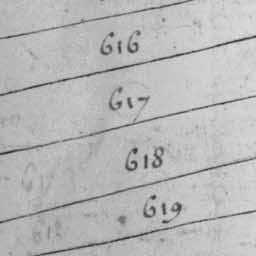 616
617
618
619